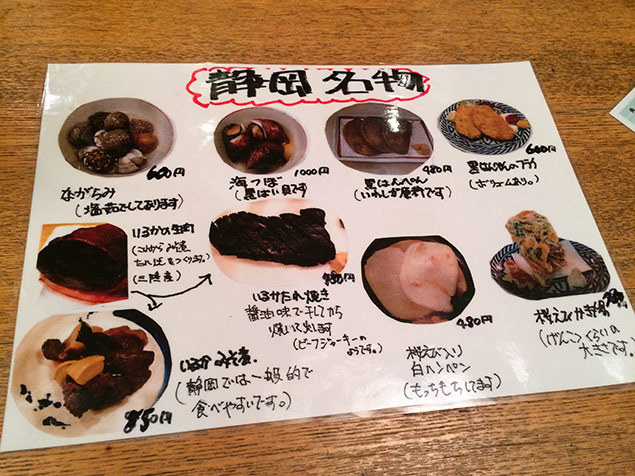 静岡名物
600円
ながらみ
(塩茹でしてあります)
1000円
海つぼ
(黒ばい貝です)
480円
黒はんぺん
(いわしが原料です)
600円
黒はんぺんのフライ
(ボリュームあり。)
いるかの生肉
(これからみそ煮、
たれ干しをつくります。)
(三陸産)
いるかたれ焼き
醤油味で干してから
焼いて出します
(ビーフジャーキーの
ようです。)
480円
桜えび入り
白ハンペン
(もっちもちしてます)
桜えびかき揚
(げんこつくらいの
大きさです。)
850円
いるかみそ煮
(静岡では一般的で
食べやすいです。)